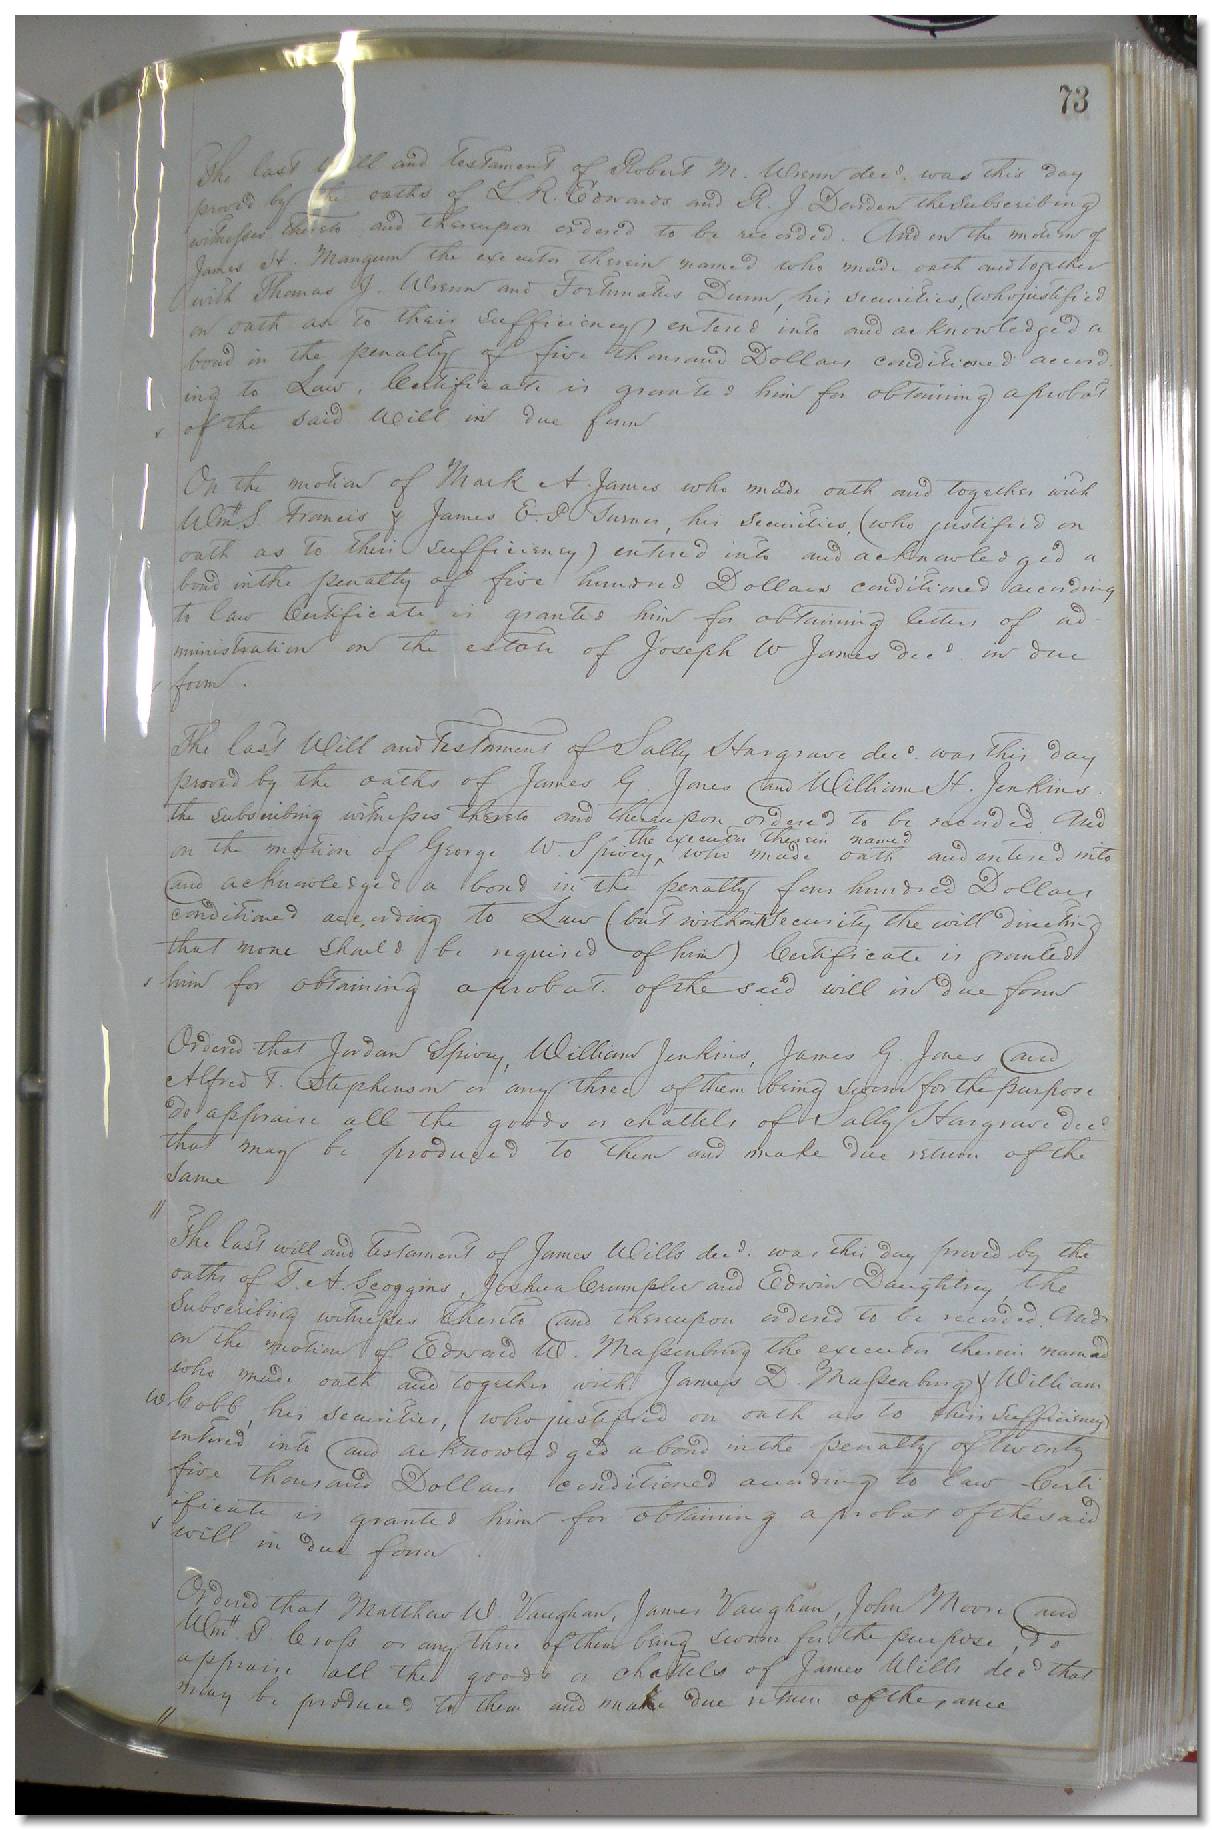 73
The last Will and testament of Robert M. Wrenn decd. was this day
proved by the oaths of L R. Edwards and R. J Darden the subscribing
witnesses thereto and thereupon ordered to be recorded. And on the motion of
James H. Mangum the executor therein named who made oath and together
with Thomas J. Wrenn and Fortunatus Dunn, his securities, (who justified
on oath as to their sufficiency) entered into and acknowledged a
bond in the penalty of five thousand Dollars conditioned accord
ing to Law. Certificate is granted him for obtaining a probat
of the said Will in due form
On the motion of Mark A. James who made oath and together with
Wm. S. Francis & James E. Turner, his securities, (who justified on
oath as to their sufficiency) entered into and acknowledged a
bond in the penalty of five hundred Dollars conditioned according
to law Certificate is granted him for obtaining letters of ad-
ministration on the estate of Joseph W James decd. in due
form.
The last Will and Testament of Sally Hargrave decd. was this day
proved by the oaths of James G. Jones and William H. Jenkins.
the subscribing witnesses thereto and thereupon ordered to be recorded And
on the motion of George W. Spivey, the executor therein named who made oath and entered into
and acknowledged a bond in the penalty four hundred Dollars
conditioned according to Law (but without security the will directing
that none should be required of him) Certificate is granted
him for obtaining a probat. of the said will in due form
Ordered that Jordan Spivey, William Jenkins, James G. Jones and
Alfred T. Stephenson or any three of them being sworn for the purpose
do appraise all the goods or chattels of Sally Hargrave decd
that may be produced to them and make due return of the
same
"
The last will and testament of James Wills decd. was this day proved by the
oaths of T. A. Scoggins, Joshua Crumpler and Edwin Daughtrey, the
Subscribing witnesses thereto and thereupon ordered to be recorded. And
on the motion of Edward W. Massenburg the executor therein named
who made oath and together with James D. Massenburg & William
W Cobb, his securities, (who justified on oath as to their sufficiency)
entered into and acknowledged a bond in the penalty of twenty
five thousand Dollars conditioned according to law Certi
ificate is granted him for obtaining a probat of the said
will in due form.
Ordered that Matthew W. Vaughan, James Vaughan, John Moore and
Wm. P Cross or any three of them being sworn for the purpose, do
appraise all the goods or chattels of James Wills decd that
may be produced to them and make due return of the same
"